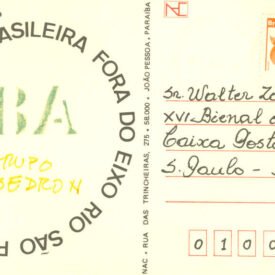 ASILEIRA FORA DO EIXO RIO SÃO P
BA
NAC • RUA DAS TRINCHEIRAS, 275 • 58.000 • JOÃO PESSOA, PARAÍBA
Sr. Walter Za
XVI Bienal d
Caixa Posta
S. Paulo -
0 1 0 0